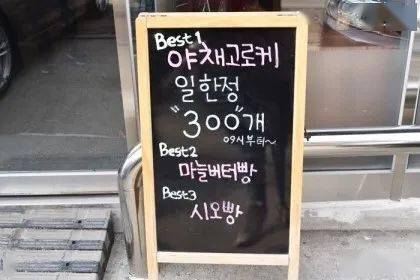 Best1
야채고로케
일한정
"300"개
09시부터~
Best2
마늘버터빵
Best3
시오빵